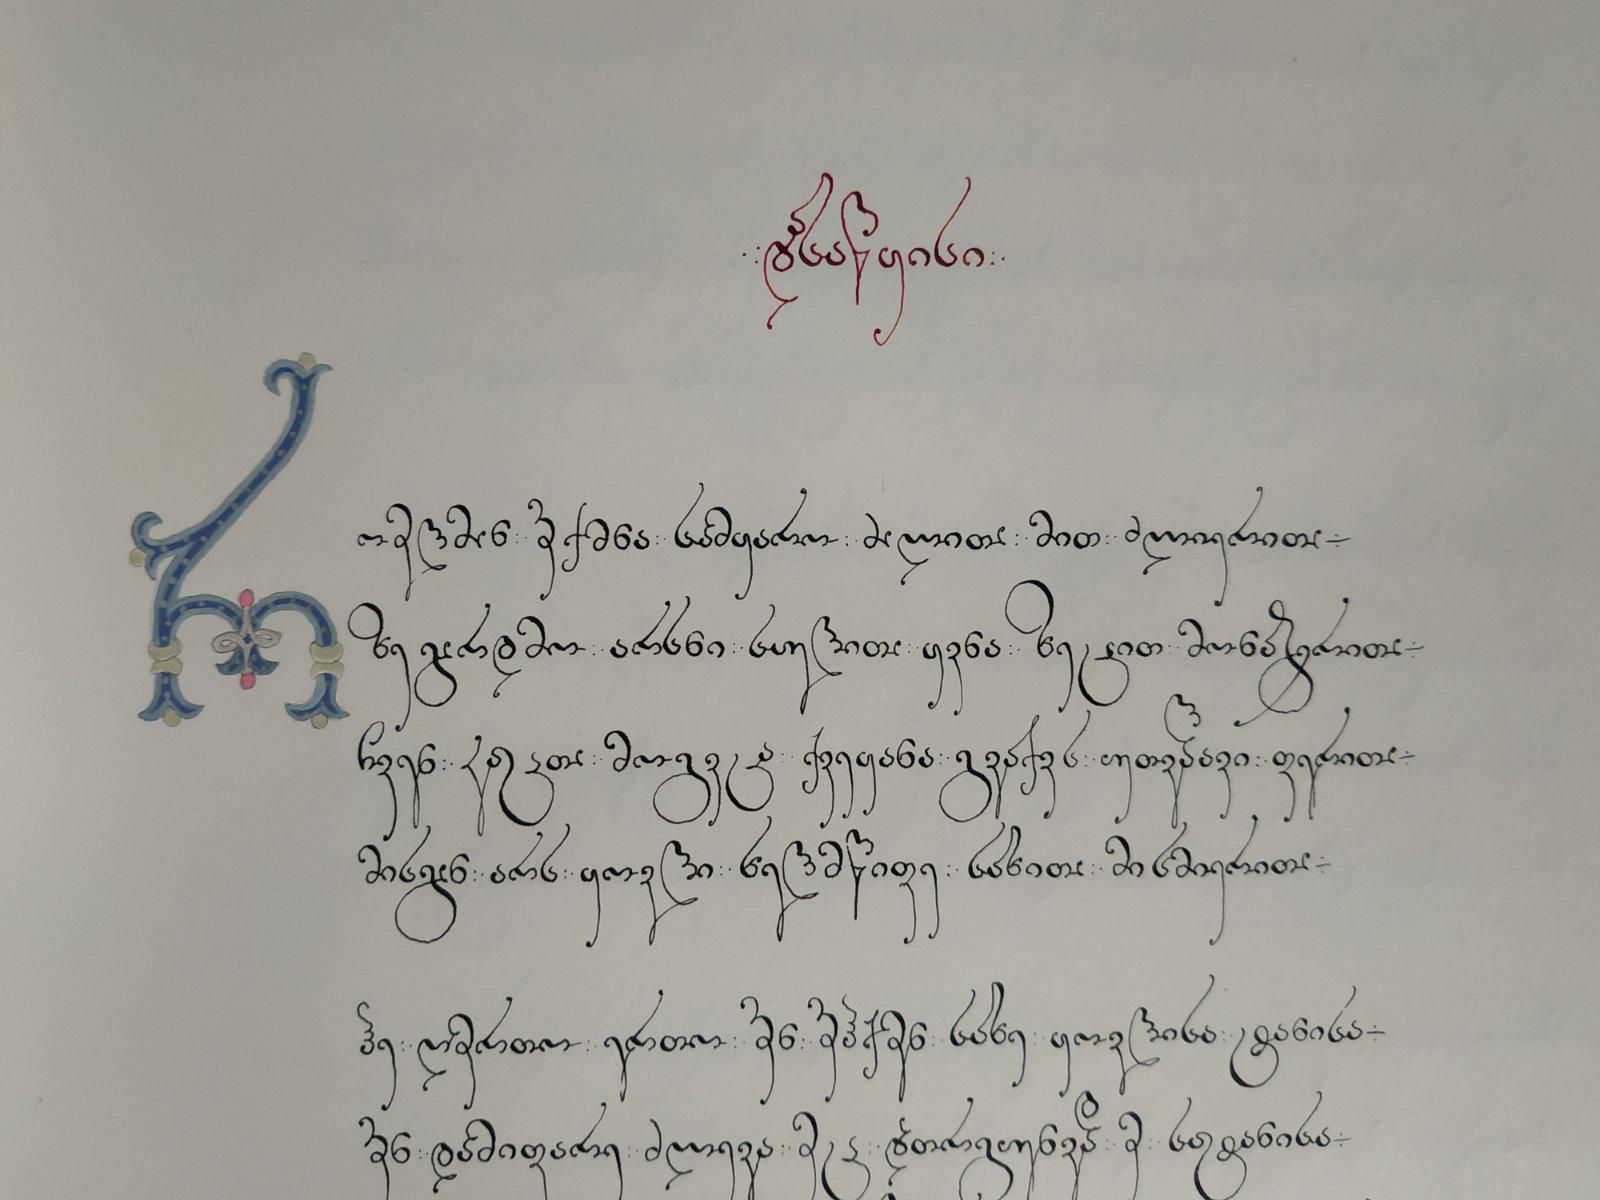 დასაწყისი
რომელმან შექმნა სამყარო ძალითა მით ძლიერითა
ზეგარდმო არსნი სულითა ყვნა ზეცით მონაბერითა
ჩვენ კაცთა მოგვცა ქვეყანა გვაქვს უთვალავი ფერითა
მისგან არს ყოვლი ხელმწიფე სახითა მის მიერითა
ჰე ღმერთო ერთო შენ შეჰქმენ სახე ყოვლისა ტანისა
შენ დამიფარე ძლევა მეც დათრგუნვად მე სატანისა